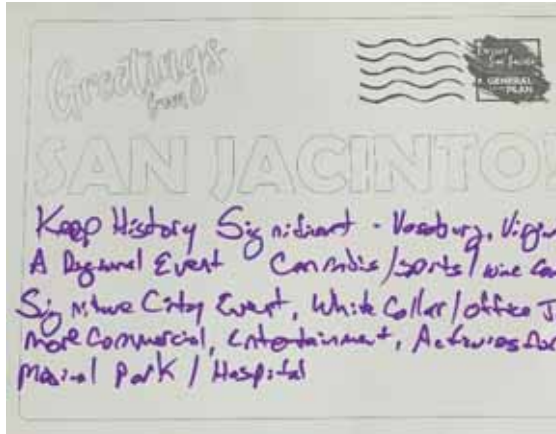 Greetings
from
GENERAL
PLAN
SAN JACINTO
Keep History Significant - Vosburg,
A Regional Event Cannabis/sports/wine
Signiture City Event, White Collar/office J
more Commercial, Entertainment, Activities for
Medical Park / Hospital